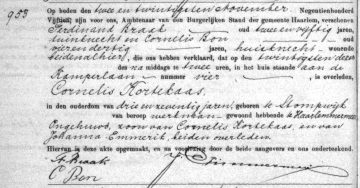 953
Op heden den twee en twintigsten November Negentienhonderd
Vijftien, zijn voor ons, Ambtenaar van den Burgerlijken Stand der gemeente Haarlem, verschenen
Ferdinand Kraak oud twee en vijftig jaren,
huisknecht en Cornelis Bon, oud
vier en dertig jaren, huisknecht wonende
beiden alhier, die ons hebben verklaard, dat op den twintigsten dezer
des na middags te twee uren, in het huis staande aan de
Kamperlaan nummer vier, is overleden,
Cornelis Kortekaas
in den ouderdom van drie en zeventig jaren, geboren te Stompwijk
van beroep werkman gewoond hebbende te Haarlemmermeer
Ongehuwd, zoon van Cornelis Kortekaas, en van
Johanna Emmerik, beiden overleden
Hiervan is deze akte opgemaakt, en na voorlezing door de beide aangevers en ons onderteekend.
F. Kraak
C Bon